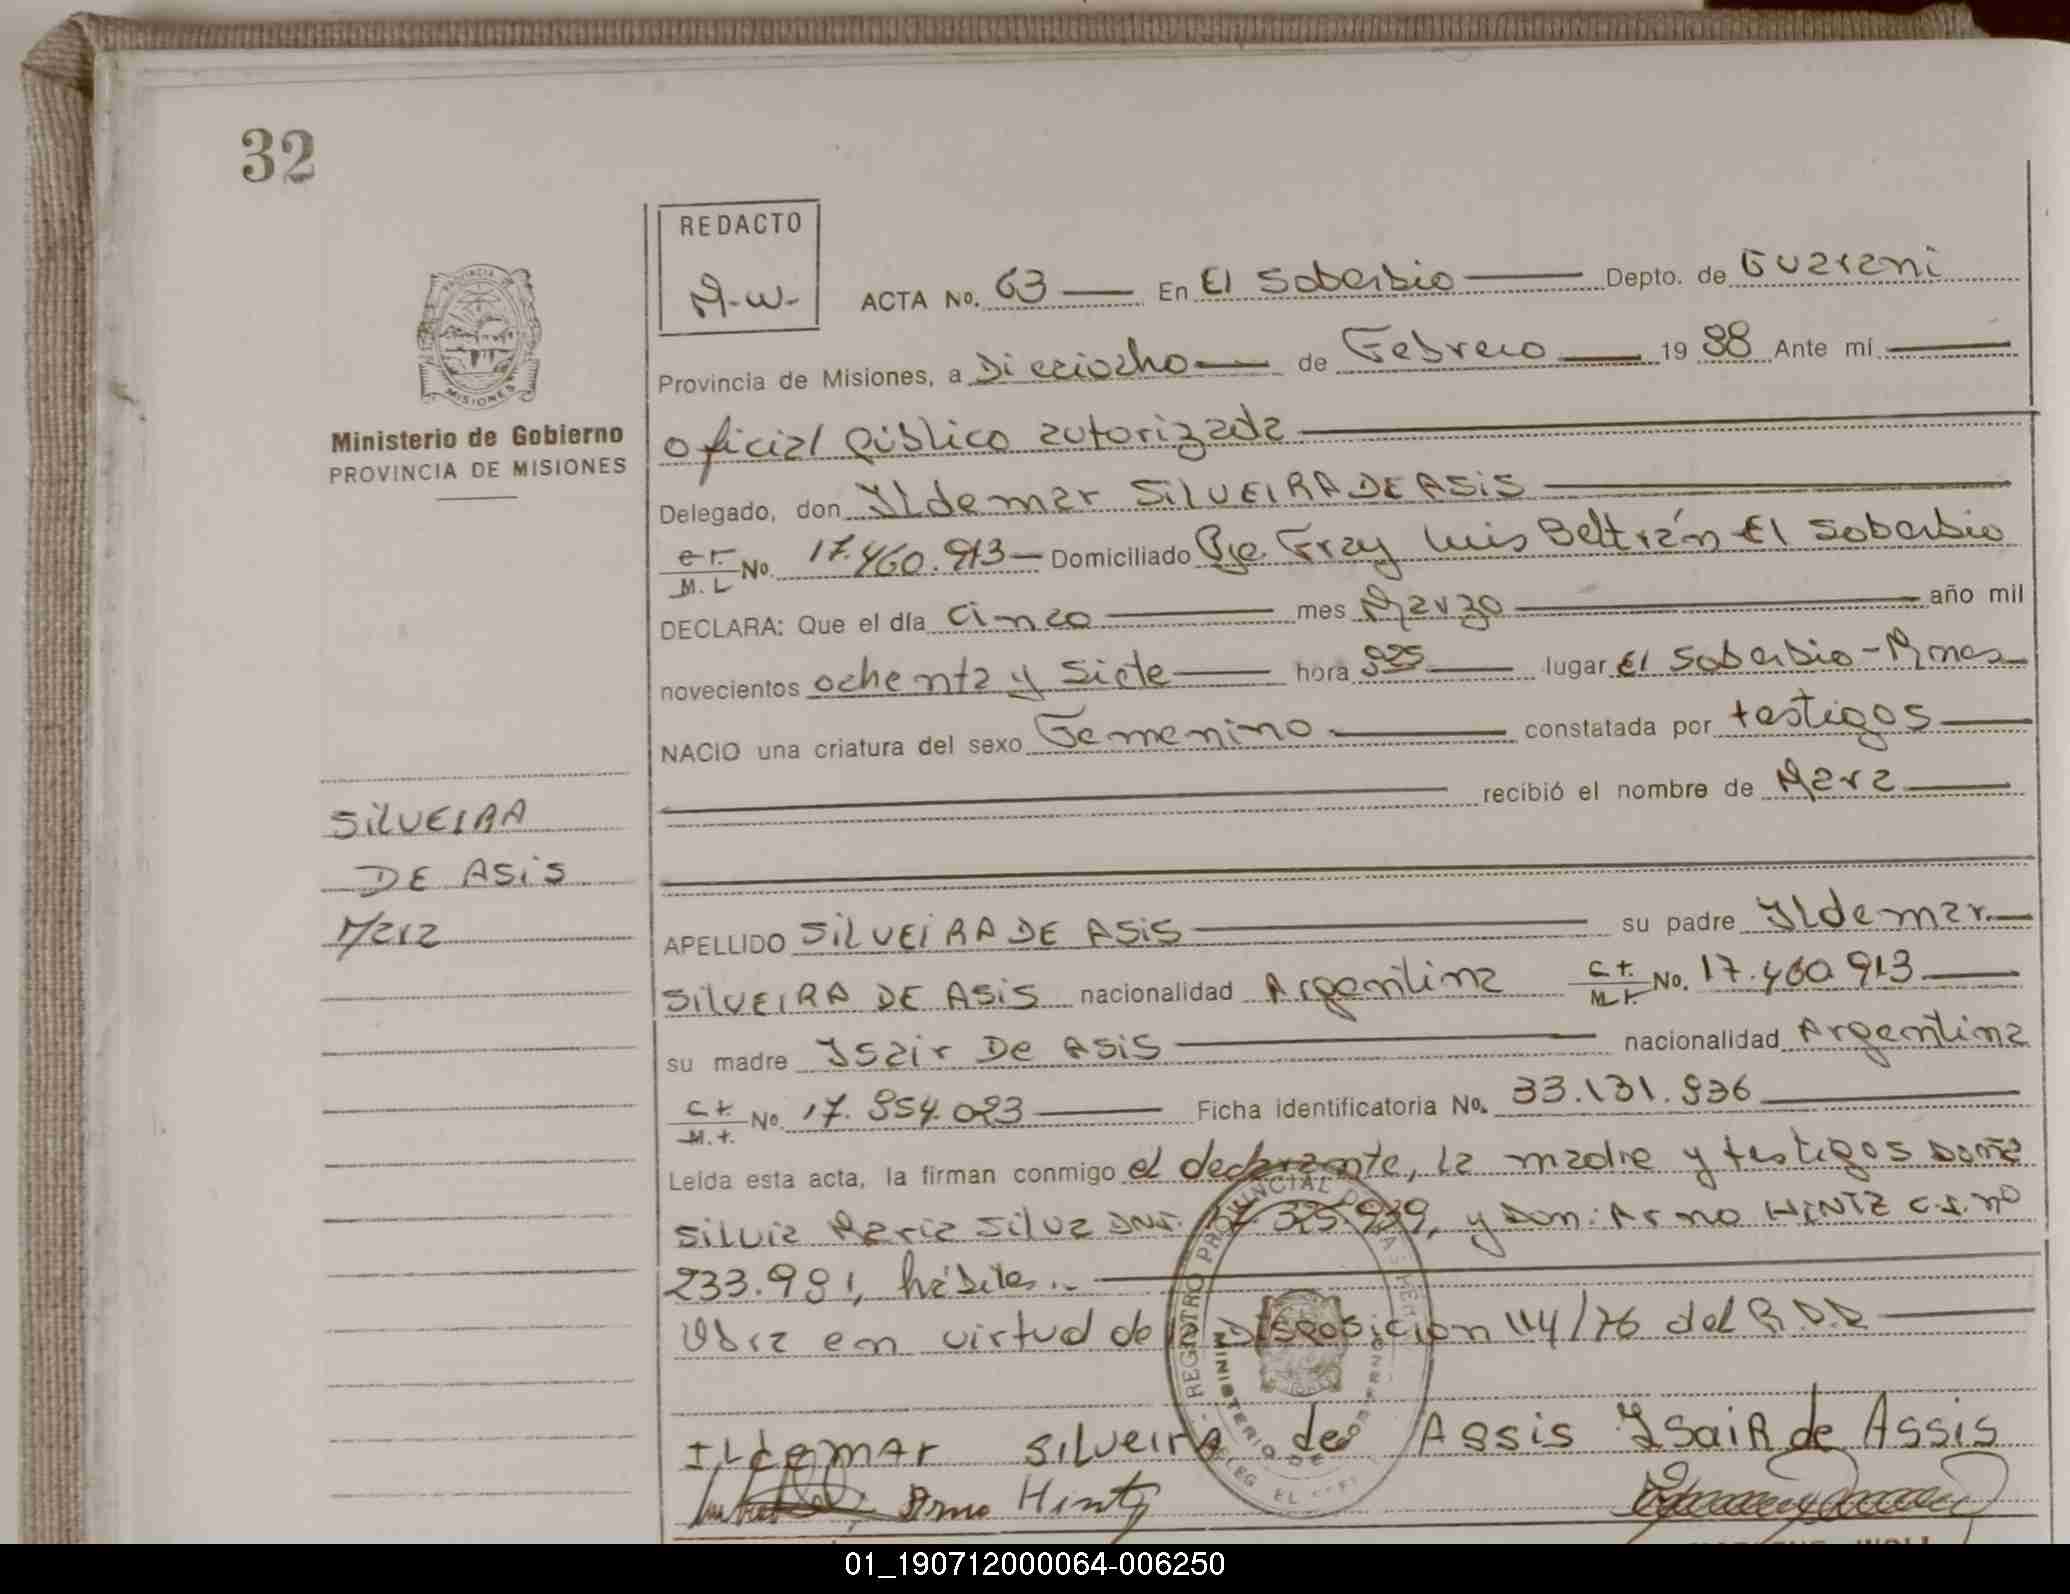 32
REDACTO
M-W-
PROVINCIA
MISIONES
ACTA No. 63 En El Soberbio Depto. de Guarani
Provincia de Misiones, a Dieciocho de Febrero 1988 Ante mí
oficial público autorizada
Ministerio de Gobierno
PROVINCIA DE MISIONES
Delegado, don Ildemar SILVEIRA DE ASIS
No. 17.460.913 Domiciliado Fray Luis Beltrán El Soberbio
DECLARA: Que el día cinco mes Marzo año mil
novecientos ochenta y siete hora lugar El Soberbio - Mnes
NACIO una criatura del sexo Femenino constatada por testigos
recibió el nombre de Mara
SILVEIRA
DE ASIS
Mara
APELLIDO SILVEIRA DE ASIS su padre Ildemar
SILVEIRA DE ASIS nacionalidad Argentina No. 17.460.913
su madre Isair DE ASIS nacionalidad Argentina
No Ficha identificatoria No.
Leída esta acta, la firman conmigo el declarante, la madre y testigos Doña
Silvia Maria Silva DNI. y Don: Arno HINTZ C.I. nº
hábiles.-
Obra en virtud de Disposicion 114/76 del
REGISTRO PROVINCIAL DE LAS PERS
MINISTERIO DE GOBIERNO
DELEG EL
ILdemar Silveira de Assis Isair de Assis
Arno Hintz
01_190712000064-006250